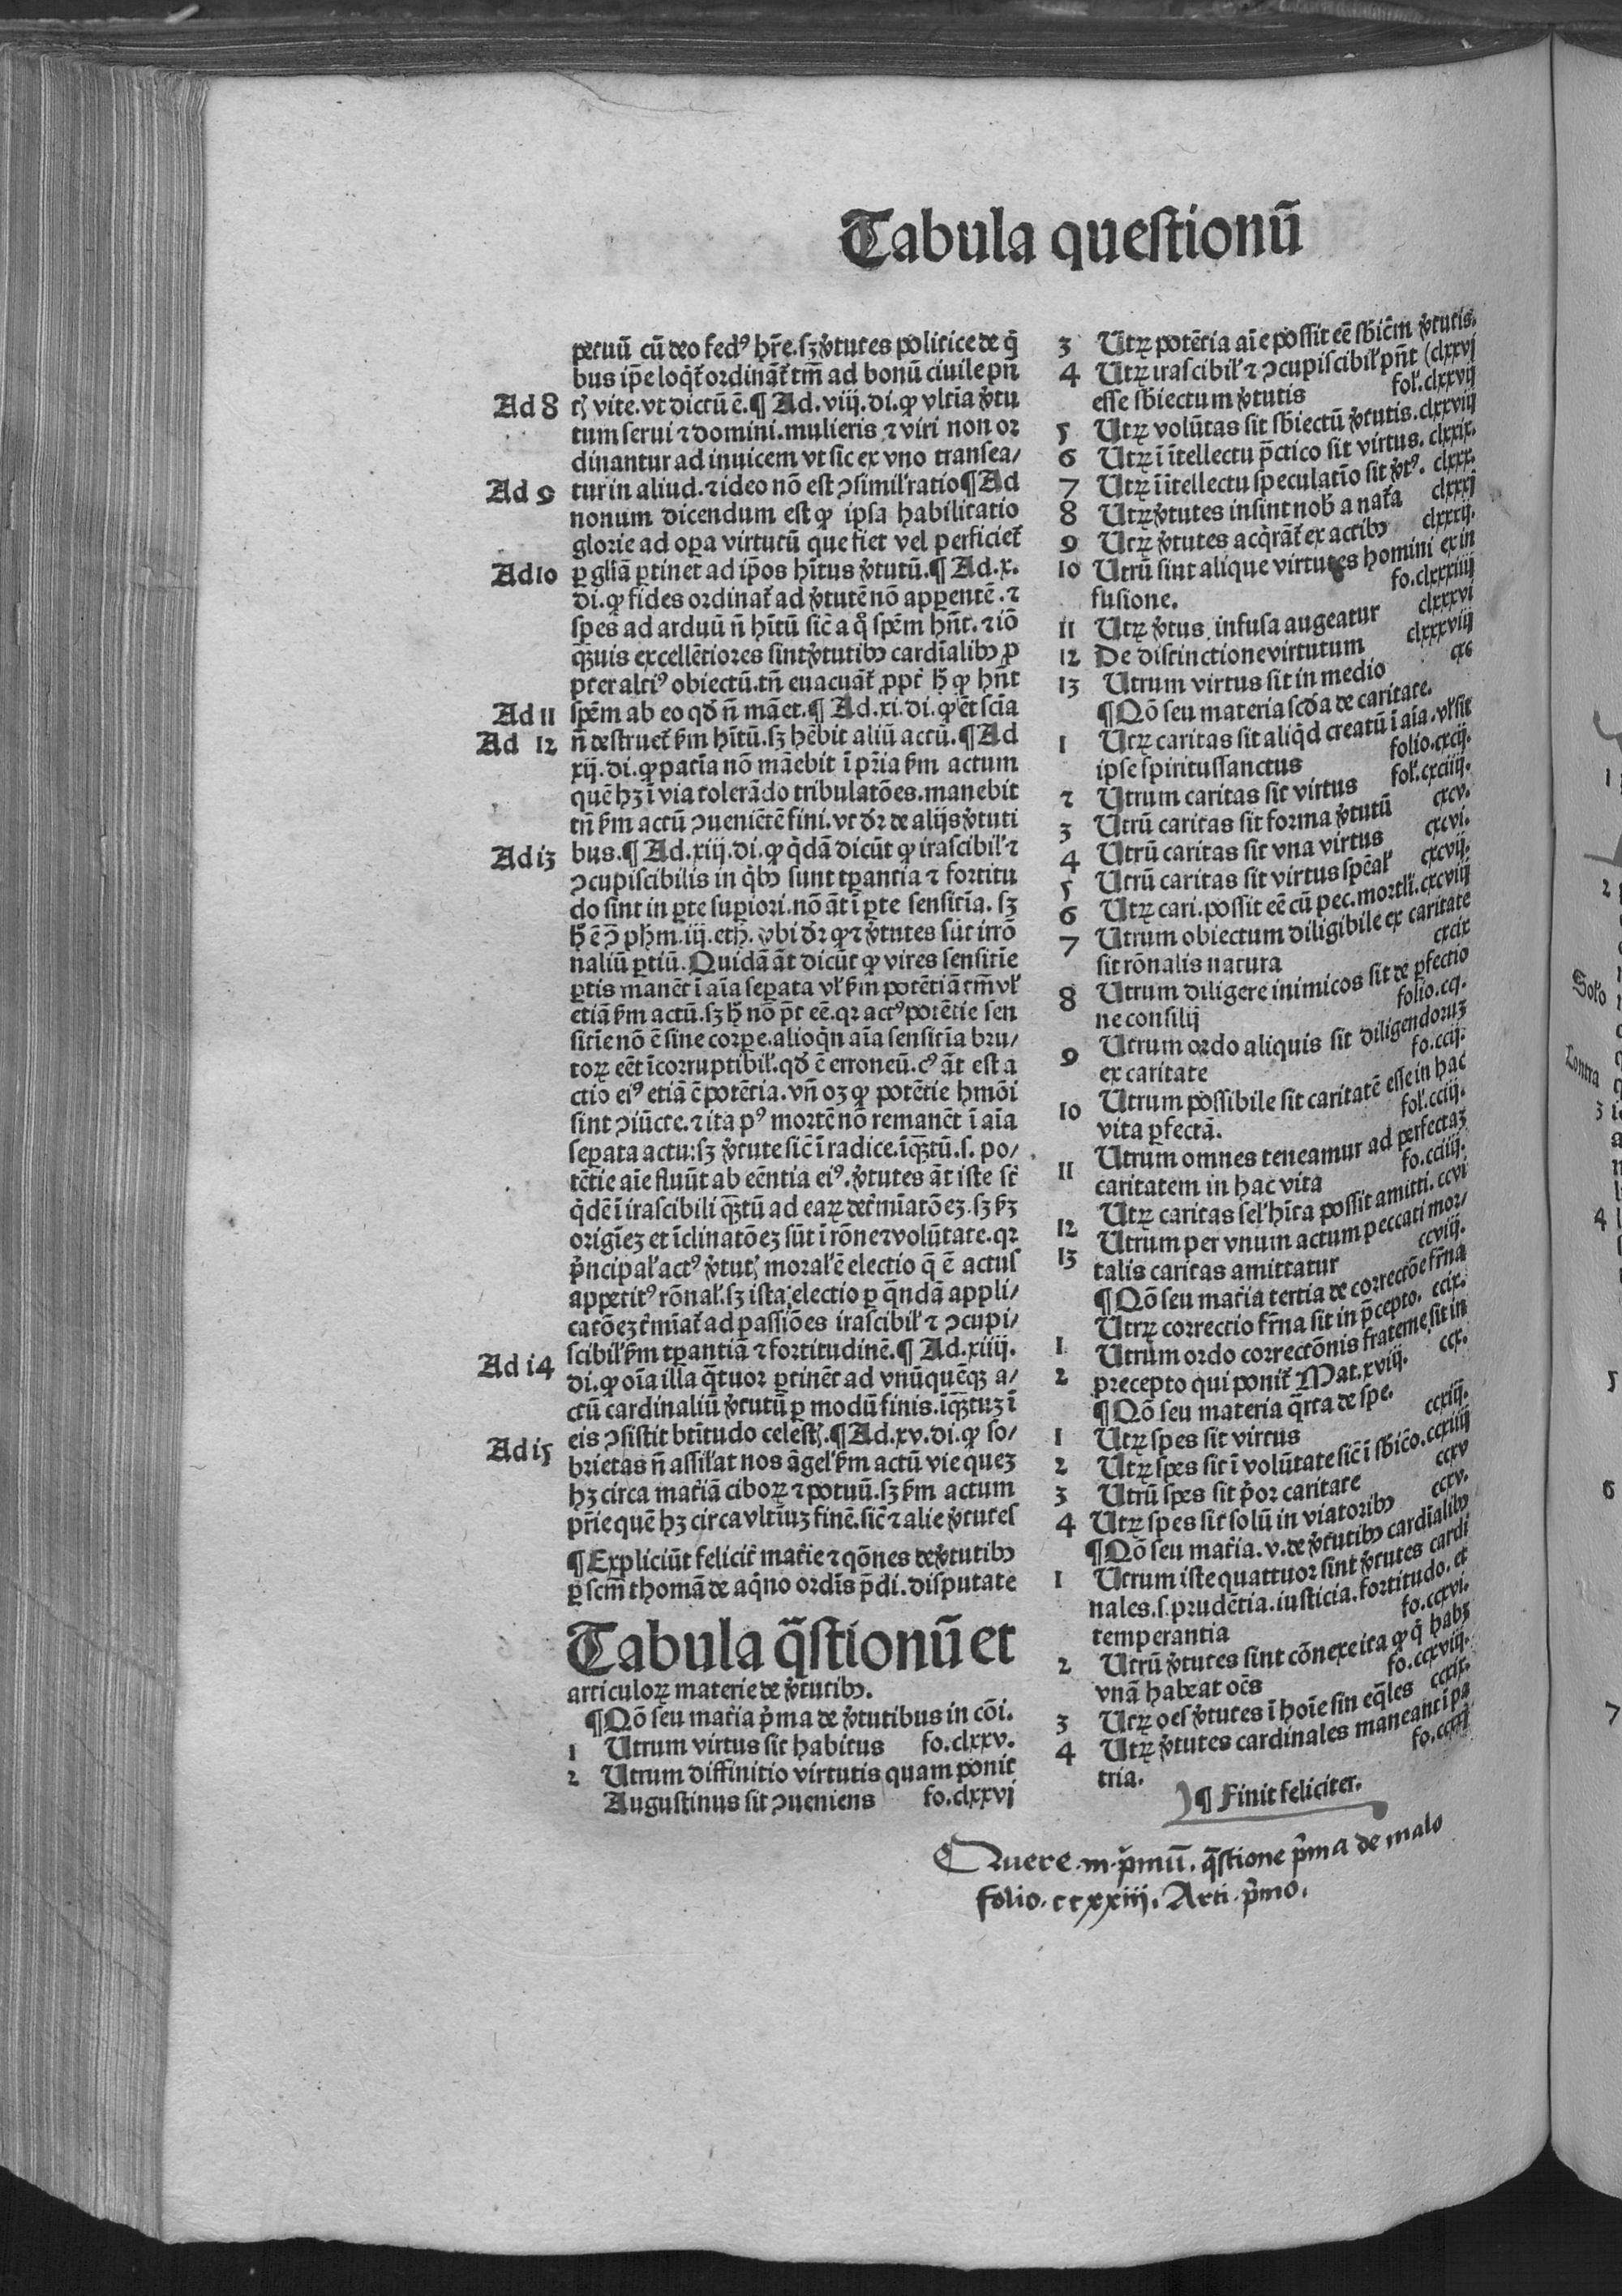 Tabula questionū
petuū cū deo fedꝰ hr̄e. sꝫ v̾tutes politice de q̇
bus ip̄e loqt̄ ordināt̄ tm̄ ad bonū ciuile pn̄
Ad 8
tꝭ vite. vt dictū ē. ¶ Ad. viij. di. ꝙ vltīa v̾tu
tum serui ⁊ domini. mulieris ⁊ viri non or
dinantur ad inuicem vt sic ex vno transea/
Ad 9
tur in aliud. ⁊ ideo nō est ꝯsimil' ratio ¶ Ad
nonum dicendum est ꝙ ipsa habilitatio
glorie ad oꝑa virtutū que fiet vel perficiet̄
Ad 10
ꝑ glīā ꝑtinet ad ip̄os hītus v̾tutū. ¶ Ad. x.
di. ꝙ fides ordinat̄ ad v̾tutē nō apꝑentē. ⁊
spes ad arduū n̄ hītū sic̄ a qͦ spēm hn̄t. ⁊ iō
q̄ꝫuis excellētiores sint v̾tutibꝰ cardīalibꝰ ꝓ
pter altiꝰ obiectū. tn̄ euacuāt̄ ꝓpt̄ h̄ ꝙ hn̄t
Ad 11
spēm ab eo qd̄ n̄ māet. ¶ Ad. xi. di. ꝙ ēt scīa
Ad 12
n̄ destruet̄ ẜm hītū. sꝫ hēbit aliū actū. ¶ Ad
xij. di. ꝙ patīa nō māebit ī pr̄ia ẜm actum
quē hꝫ ī via tolerādo tribulatōes. manebit
tn̄ ẜm actū ꝯueniētē fini. vt dr̄ de alijs v̾tuti
Ad 13
bus. ¶ Ad. xiij. di. ꝙ q̇dā dicūt ꝙ irascibil' ⁊
ꝯcupiscibilis in q̇bꝰ sunt tꝑantia ⁊ fortitu
do sint in ꝑte suꝑiori. nō āt ī ꝑte sensitīa. sꝫ
h̄ ē ꝯ̄ pħm. iij. eth. vbi dr̄ ꝙ ⁊ v̾tutes sūt irrō
naliū ꝑtiū. Quidā āt dicūt ꝙ vires sensitīe
ꝑtis manēt ī aīa seꝑata vl' ẜm potētiā tm̄ vl'
etiā ẜm actū. sꝫ h̄ nō pt̄ eē. qꝛ actꝰ potētie sen
sitīe nō ē sine corꝑe. alioq̇n aīa sensitīa bru/
toꝝ eēt īcorruptibil'. qd̄ ē erroneū. cꝰ āt est a
ctio eiꝰ etiā ē potētia. vn̄ oꝫ ꝙ potētie hmōi
sint ꝯiūcte. ⁊ ita pꝰ mortē nō remanēt ī aīa
seꝑata actu: sꝫ v̾tute sic̄ ī radice. īq̄ꝫtū. s. po/
tētie aīe fluūt ab eēntia eiꝰ. v̾tutes āt iste st̄
q̇dē ī irascibili q̄ꝫtū ad eaꝝ det̄mīatōeꝫ. sꝫ ẜꝫ
origīeꝫ et īclinatōeꝫ sūt ī rōne ⁊ volūtate. qꝛ
p̄ncipal' actꝰ v̾tutꝭ moral' ē electio q̄ ē actus
appetitꝰ rōnal'. sꝫ ista electio ꝑ q̄ndā appli/
catōeꝫ t̄mīat̄ ad ꝑassiōes irascibil' ⁊ ꝯcupi/
scibil' ẜm tꝑantiā ⁊ fortitudinē. ¶ Ad. xiiij.
Ad 14
di. ꝙ oīa illa q̄tuor ꝑtinēt ad vnūquēqꝫ a/
ctū cardinaliū v̾tutū ꝑ modū finis. īq̄ꝫtuꝫ ī
Ad 15
eis ꝯsistit btītudo celestꝭ. ¶ Ad. xv. di. ꝙ so/
brietas n̄ assil'at nos āgel' ẜm actū vie queꝫ
hꝫ circa mat̄iā ciboꝝ ⁊ potuū. sꝫ ẜm actum
pr̄ie quē hꝫ circa vltīuꝫ finē. sic̄ ⁊ alie v̾tutes
¶ Expliciūt felicit̄ mat̄ie ⁊ qōnes de v̾tutibꝰ
ꝑ scm̄ thomā de aq̇no ordīs p̄di. disputate
Tabula q̄stionū et
articuloꝝ materie de v̾tutibꝰ.
¶ Qō seu mat̄ia p̄ma de v̾tutibus in cōi.
1 Utrum virtus sit habitus fo. clxxv.
2 Utrum diffinitio virtutis quam ponit
Augustinus sit ꝯueniens fo. clxxvj
3 Utꝝ potētia aīe possit eē sb̄iēm v̾tutis.
4 Utꝝ irascibil' ⁊ ꝯcupiscibil' pn̄t (clxxvj
esse sb̄iectum v̾tutis fol'. clxxvij
5 Utꝝ volūtas sit sb̄iectū v̾tutis. clxxviij
6 Utꝝ ī ītellectu p̄ctico sit virtus. clxxix.
7 Utꝝ ī ītellectu speculatīo sit v̾tꝰ. clxxx.
8 Utꝝ v̾tutes insint nob̄ a nat̄a clxxxj
9 Utꝝ v̾tutes acq̇rāt̄ ex actibꝰ clxxxij.
10 Utrū sint alique virtutes homini ex in
fusione. fo. clxxxiiij
11 Utꝝ v̾tus infusa augeatur clxxxvi
12 De distinctione virtutum clxxxviij
13 Utrum virtus sit in medio cxc
¶ Qō seu materia scd̄a de caritate.
1 Utꝝ caritas sit aliq̇d creatū ī aīa. vl' sit
ipse spiritussanctus folio. cxcij.
2 Utrum caritas sit virtus fol'. cxciiij.
3 Utrū caritas sit forma v̾tutū cxcv.
4 Utrū caritas sit vna virtus cxcvi.
5 Utrū caritas sit virtus spēal' cxcvij.
6 Utꝝ cari. possit eē cū pec. mortli. cxcviij
7 Utrum obiectum diligibile ex caritate
sit rōnalis natura cxcix
8 Utrum diligere inimicos sit de ꝑfectio
ne consilij folio. ccj.
9 Utrum ordo aliquis sit diligendoruꝫ
ex caritate fo. ccij.
10 Utrum possibile sit caritatē esse in hac
vita ꝑfectā. fol'. cciij.
11 Utrum omnes teneamur ad perfectaꝫ
caritatem in hac vita fo. cciiij.
12 Utꝝ caritas sel' hīta possit amitti. ccvi
13 Utrum per vnum actum peccati mor/
talis caritas amittatur ccviij.
¶ Qō seu mat̄ia tertia de correctōe fr̄na
1 Utrꝝ correctio fr̄na sit in p̄cepto. ccix.
2 Utrum ordo correctōnis fraterne sit in
precepto qui ponit̄ Mat. xviij. ccx.
¶ Qō seu materia q̄rta de spe.
1 Utꝝ spes sit virtus ccxiij.
2 Utꝝ spes sit ī volūtate sic̄ ī sb̄ico. ccxiiij
3 Utrū spes sit p̄or caritate ccxv
4 Utꝝ spes sit solū in viatoribꝰ ccxv.
¶ Qō seu mat̄ia. v. de v̾tutibꝰ cardīalibꝰ
1 Utrum iste quattuor sint v̾tutes cardi
nales. s. prudētia. iusticia. fortitudo. et
temperantia fo. ccxvi.
2 Utrū v̾tutes sint cōnexe ita ꝙ q̇ habꝫ
vnā habeat oēs fo. ccxviij.
3 Utꝝ oēs v̾tutes ī hoīe sin eq̄les ccxix.
4 Utꝝ v̾tutes cardinales maneant ī pa
tria. fo. ccxxj
¶ Finit feliciter.
Quere .m. p̄mū. q̄stione p̄ma de malo
folio. ccxxiij. Arti. p̄mo.
Solo
Contra